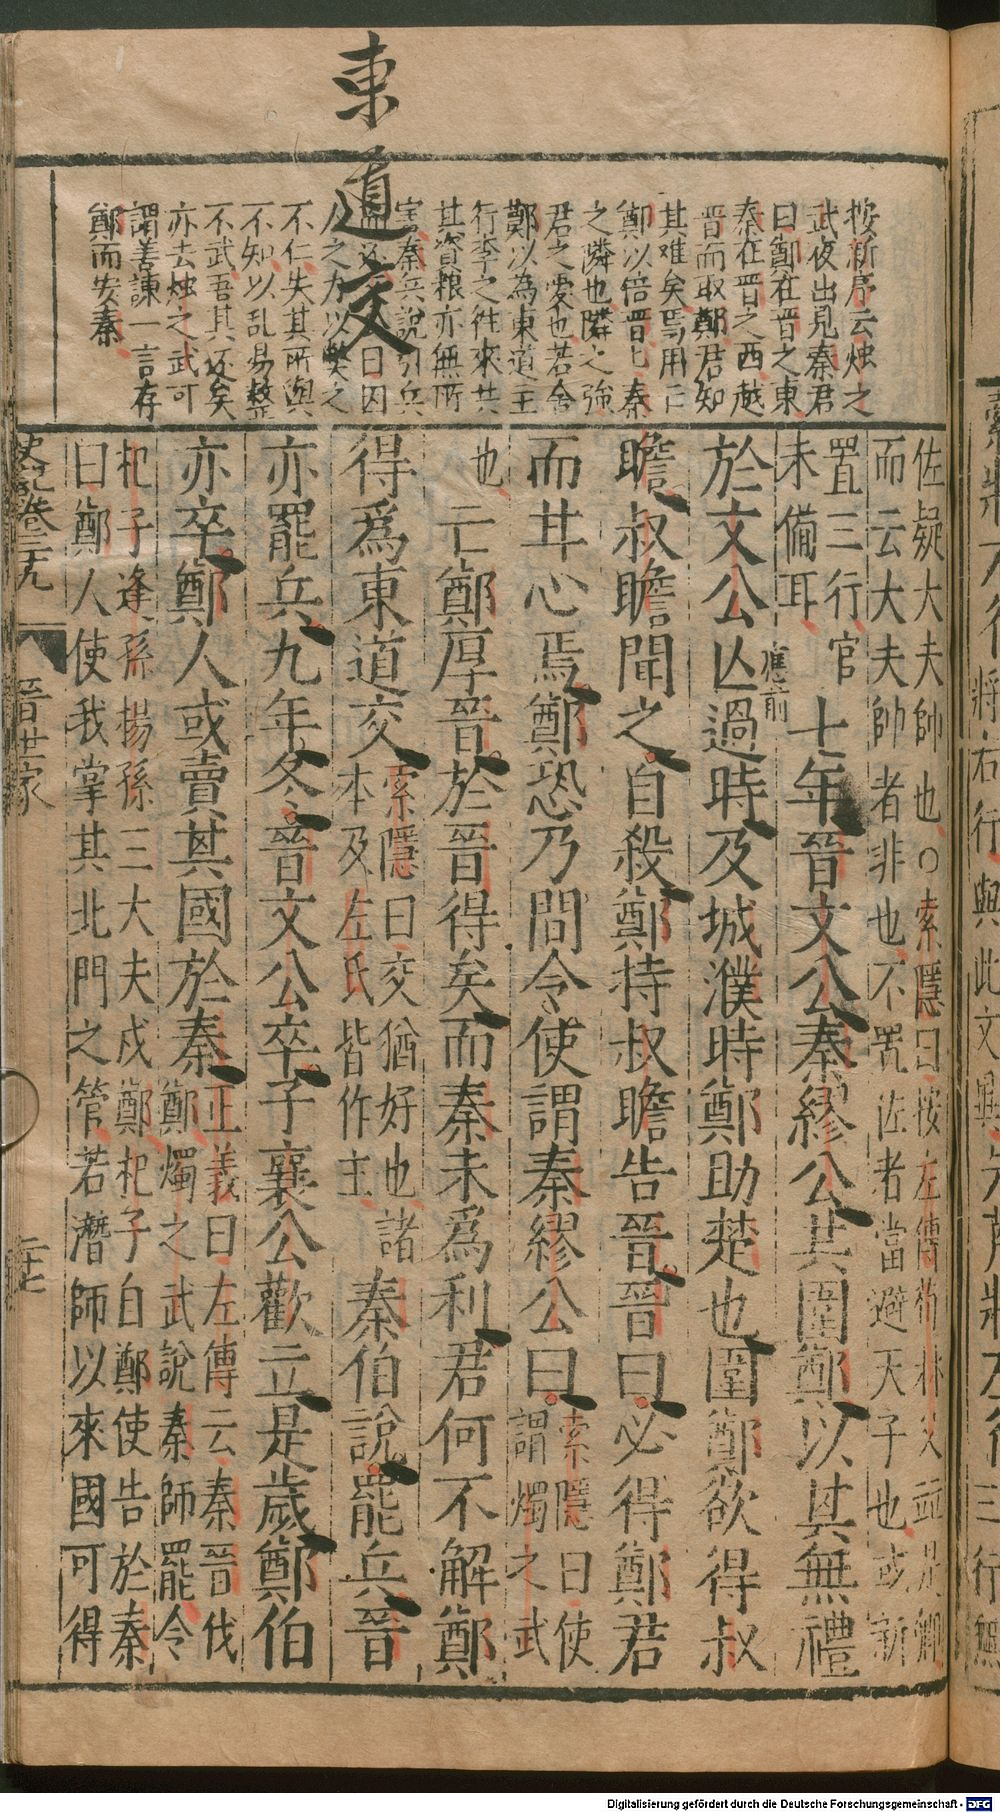 東道交
按新序云烛之
武夜出見秦君
曰鄭在晋之東
秦在晋之西越
晋而取鄭君知
其难矣焉用亡
鄭以倍晋匕秦
之隣也隣之強
君之憂也若舍
鄭以為東道主
行李之徃來共
其資粮亦無所
害秦兵說引兵
而还日因
人之力以獘之
不仁失其所與
不知以乱易整
不武吾其还矣
亦去烛之武可
謂善諌一言存
鄭而安秦
佐疑大夫帥也○索隱曰按左傳荀林父並是卿
而云大夫帥者非也不置佐者當避天子也或新
置三行官
未備耳
七年晉文公秦繆公共圍鄭以其無禮
於文公亾過時及城濮時鄭助楚也圍鄭欲得叔
應前
瞻叔瞻聞之自殺鄭持叔瞻告晉晉曰必得鄭君
而甘心焉鄭恐乃問令使謂秦繆公曰
索隱曰使
謂燭之武
也
亡鄭厚晉於晉得矣而秦未爲利君何不解鄭
得爲東道交
索隱曰交猶好也諸
本及左氏皆作主
秦伯說罷兵晉
亦罷兵九年冬晉文公卒子襄公歡立是歲鄭伯
亦卒鄭人或賣其國於秦
正義曰左傳云秦晉伐
鄭燭之武說秦師罷令
杞子逢孫揚孫三大夫戍鄭杞子自鄭使告於秦
曰鄭人使我掌其北門之管若潛師以來國可得
史記卷三十九
晉世家
二十七
Digitalisierung gefördert durch die Deutsche Forschungsgemeinschaft - DFG